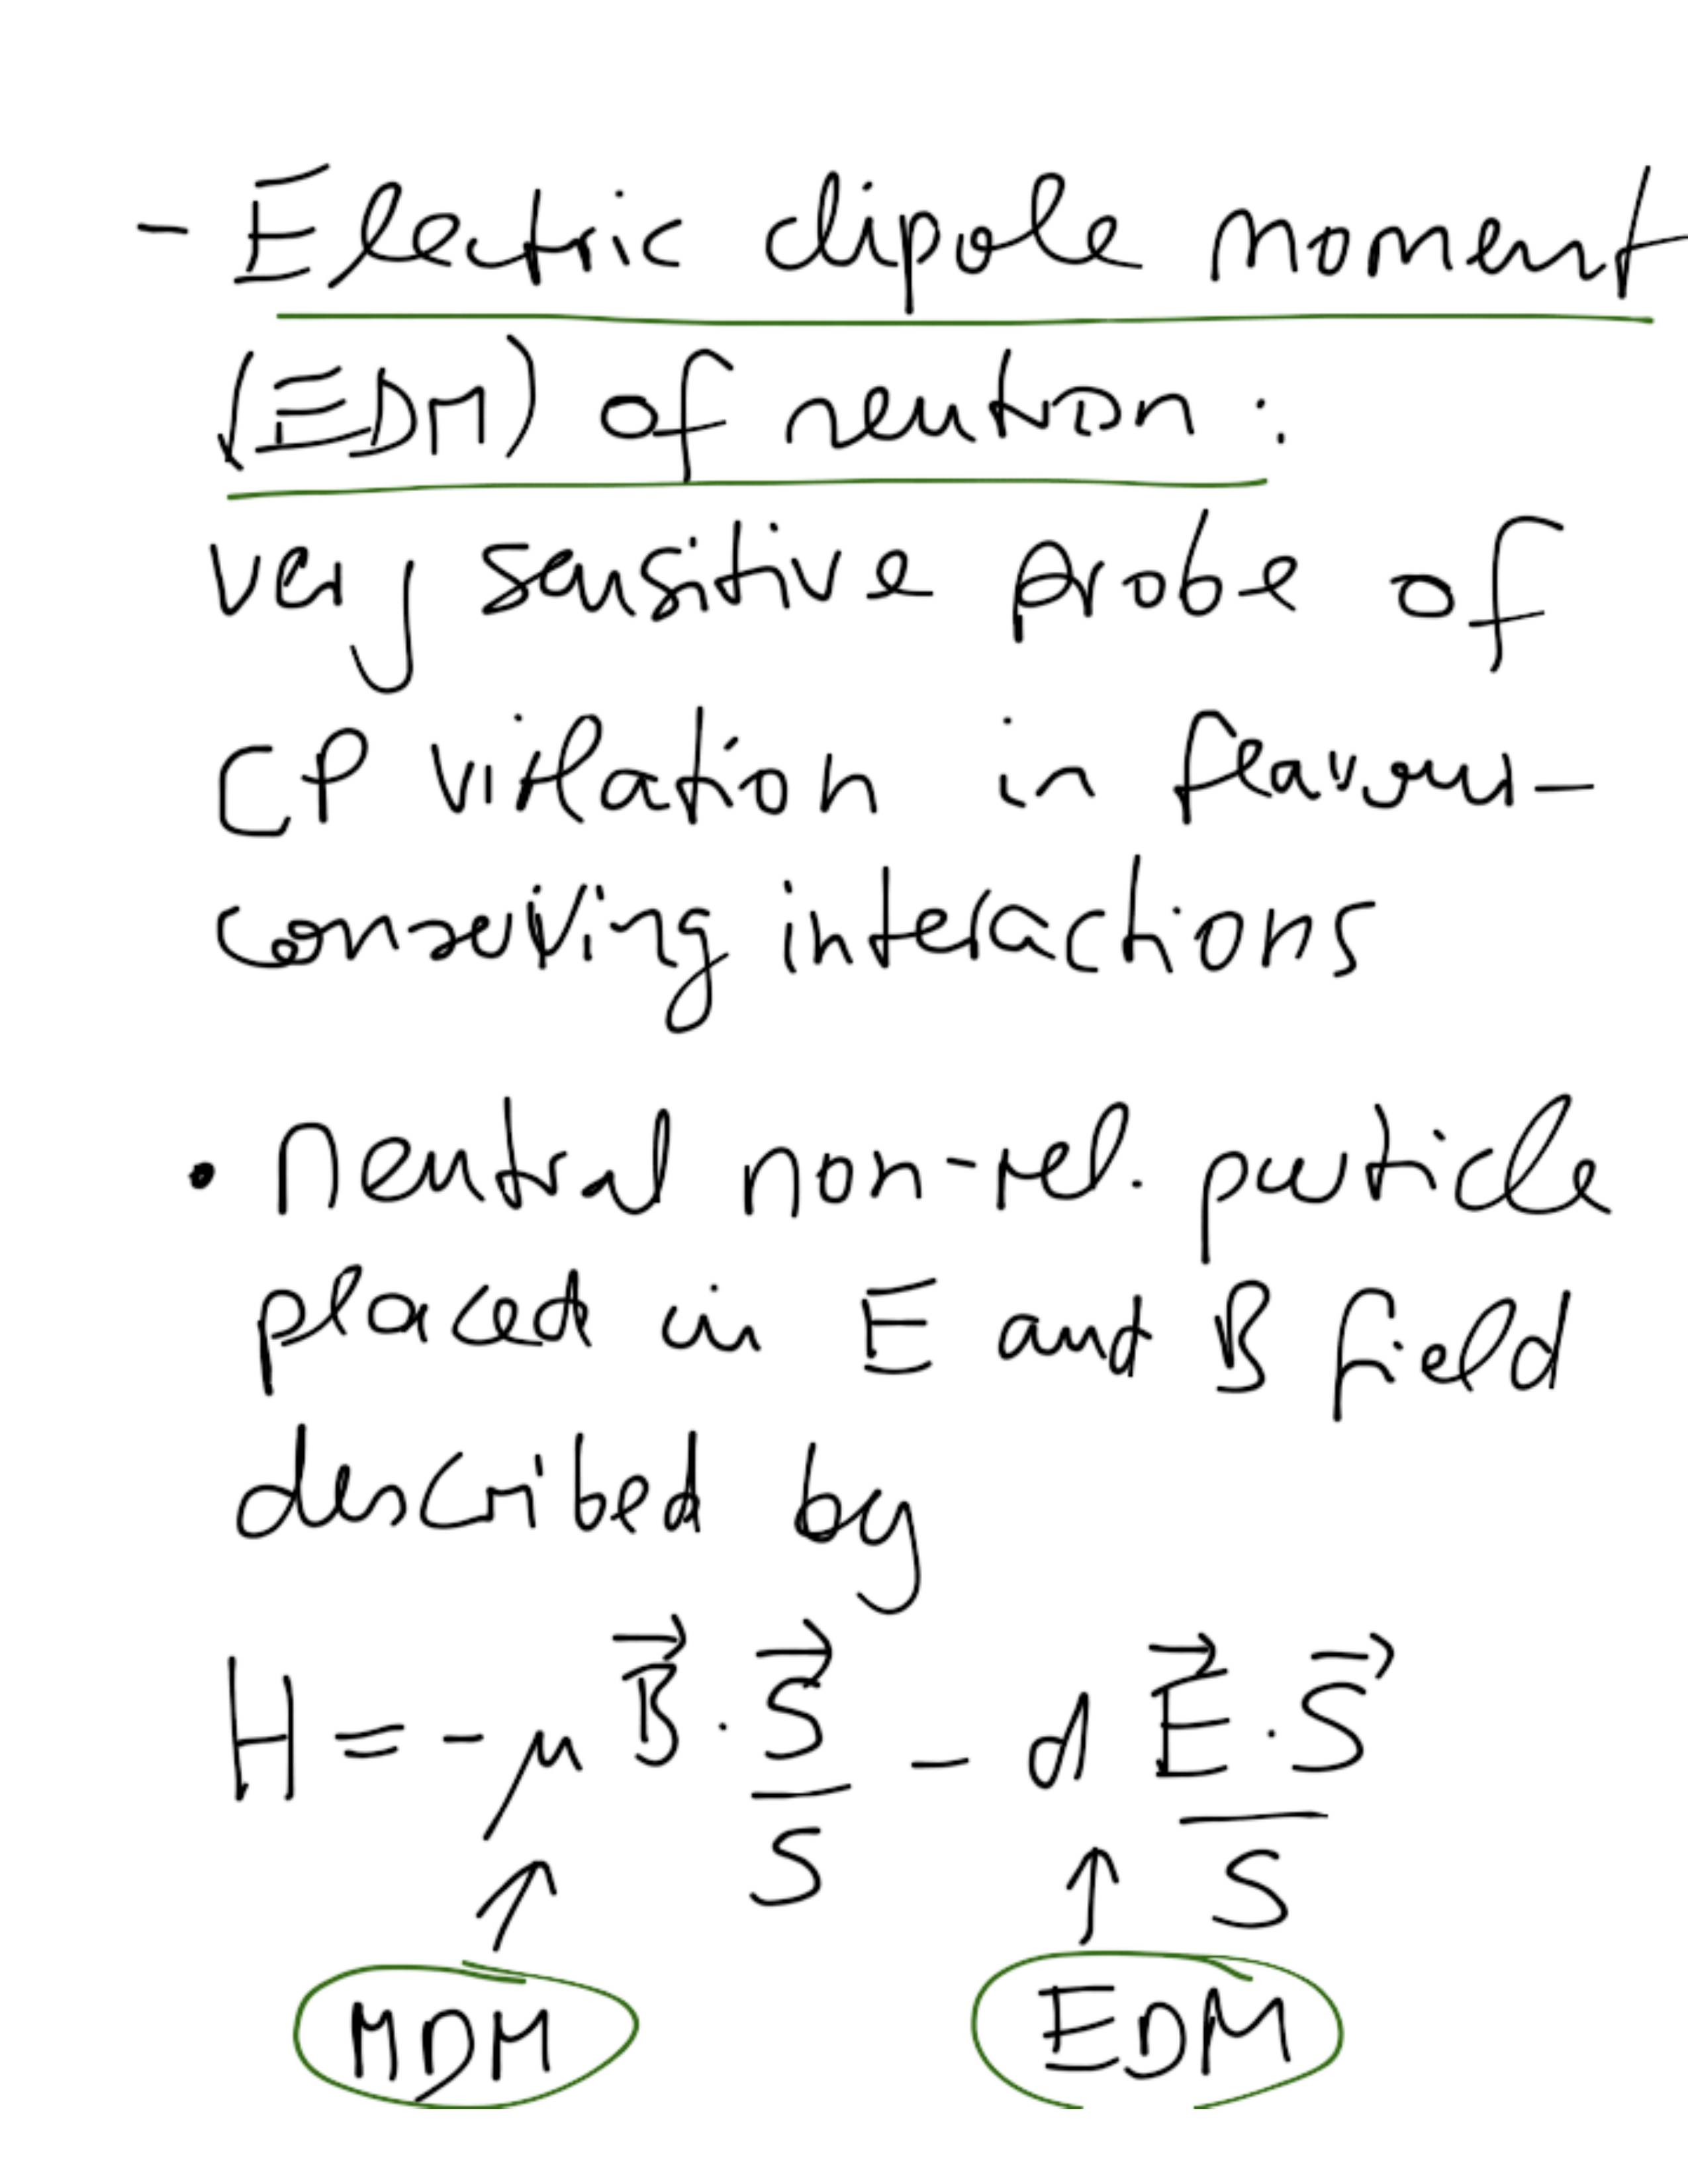 - Electric dipole moment
(EDM) of neutron :
very sensitive probe of
CP violation in flavour-
conserving interactions
• neutral non-rel. particle
placed in E and B field
described by
H = - μ B⃗ · S⃗/S - d E⃗ · S⃗/S
↑ ↑
MDM EDM